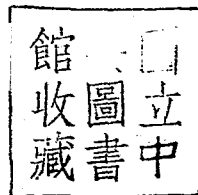 立中
圖書
館收藏